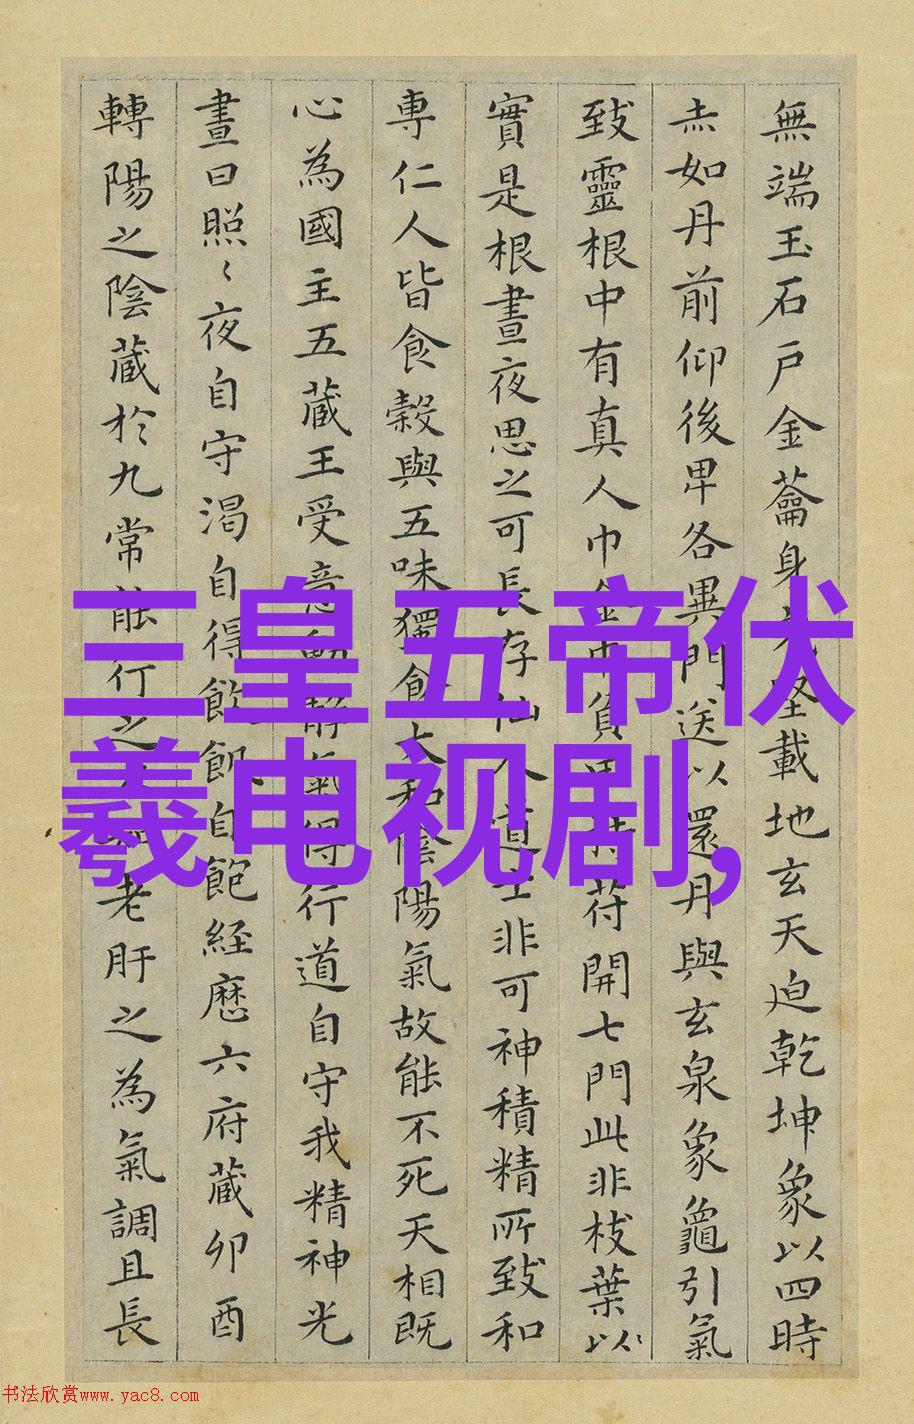 無端玉石戶金蘥身堅載地玄天迫乾坤象以四時
赤如丹前仰後卑各異門送以還丹與玄泉象龜引氣
致靈根中有真人巾金巾負甲持符開七門此非枝葉以
實是根晝夜思之可長存仙人道士非可神積精所致和
專仁人皆食穀與五味獨食太和陰陽氣故能不死天相既
心為國主五藏王受意動靜氣得行道自守我精神光
晝日照〻夜自守渴自得飲飢自飽經歷六府藏卯酉
轉陽之陰藏於九常能行之不知老肝之為氣調且長
三皇五帝伏
羲电视剧,
书法欣赏www.yac8.com